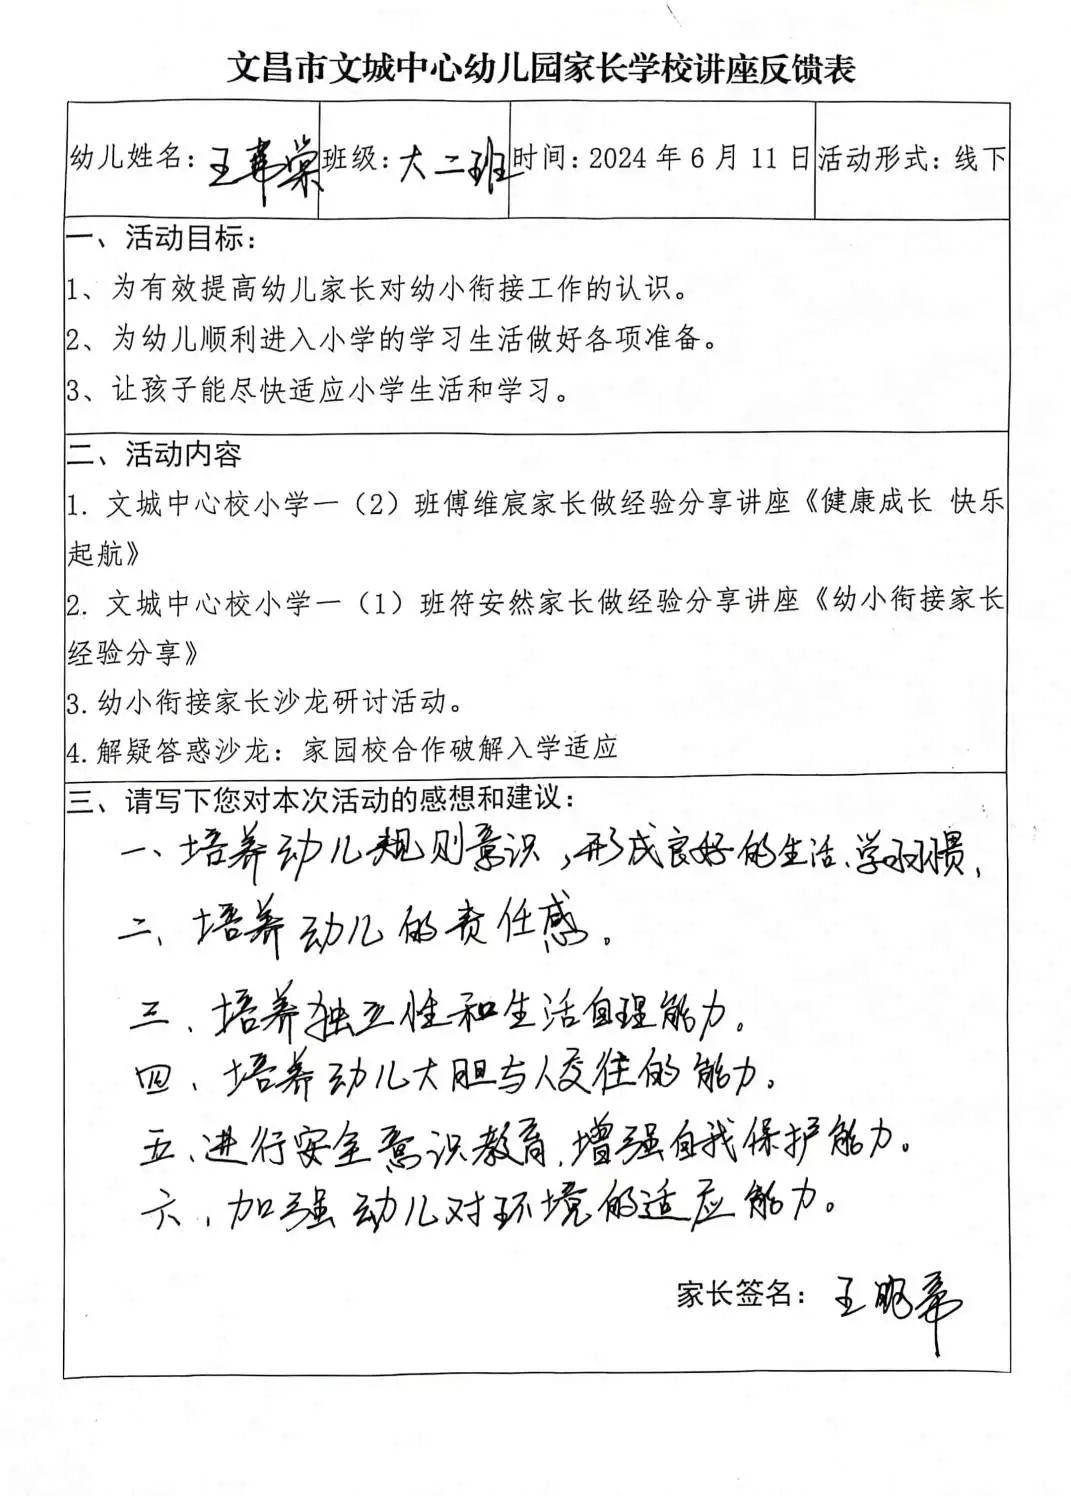 文昌市文城中心幼儿园家长学校讲座反馈表
幼儿姓名：王 棠 班级：大二班 时间：2024年6月11日 活动形式：线下
一、活动目标：
1、为有效提高幼儿家长对幼小衔接工作的认识。
2、为幼儿顺利进入小学的学习生活做好各项准备。
3、让孩子能尽快适应小学生活和学习。
二、活动内容
1. 文城中心校小学一（2）班傅维宸家长做经验分享讲座《健康成长 快乐
起航》
2. 文城中心校小学一（1）班符安然家长做经验分享讲座《幼小衔接家长
经验分享》
3.幼小衔接家长沙龙研讨活动。
4.解疑答惑沙龙：家园校合作破解入学适应
三、请写下您对本次活动的感想和建议：
一、培养幼儿规则意识，形成良好的生活、学习习惯，
二、培养幼儿的责任感。
三、培养独立性和生活自理能力。
四、培养幼儿大胆与人交往的能力。
五、进行安全意识教育，增强自我保护能力。
六、加强幼儿对环境的适应能力。
家长签名：王